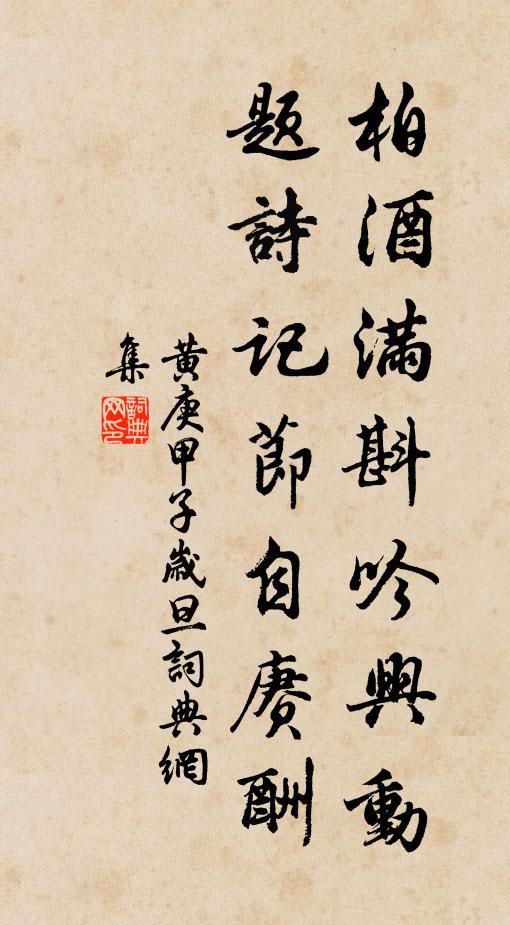 柏酒满斟吟興動
題詩記節自赓酬
黃庚甲子歲旦詞典網
集
詞典网印